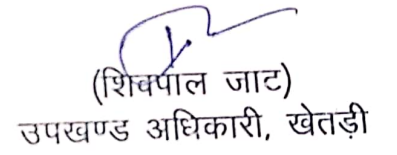 (शिवपाल जाट)
उपखण्ड अधिकारी, खेतड़ी